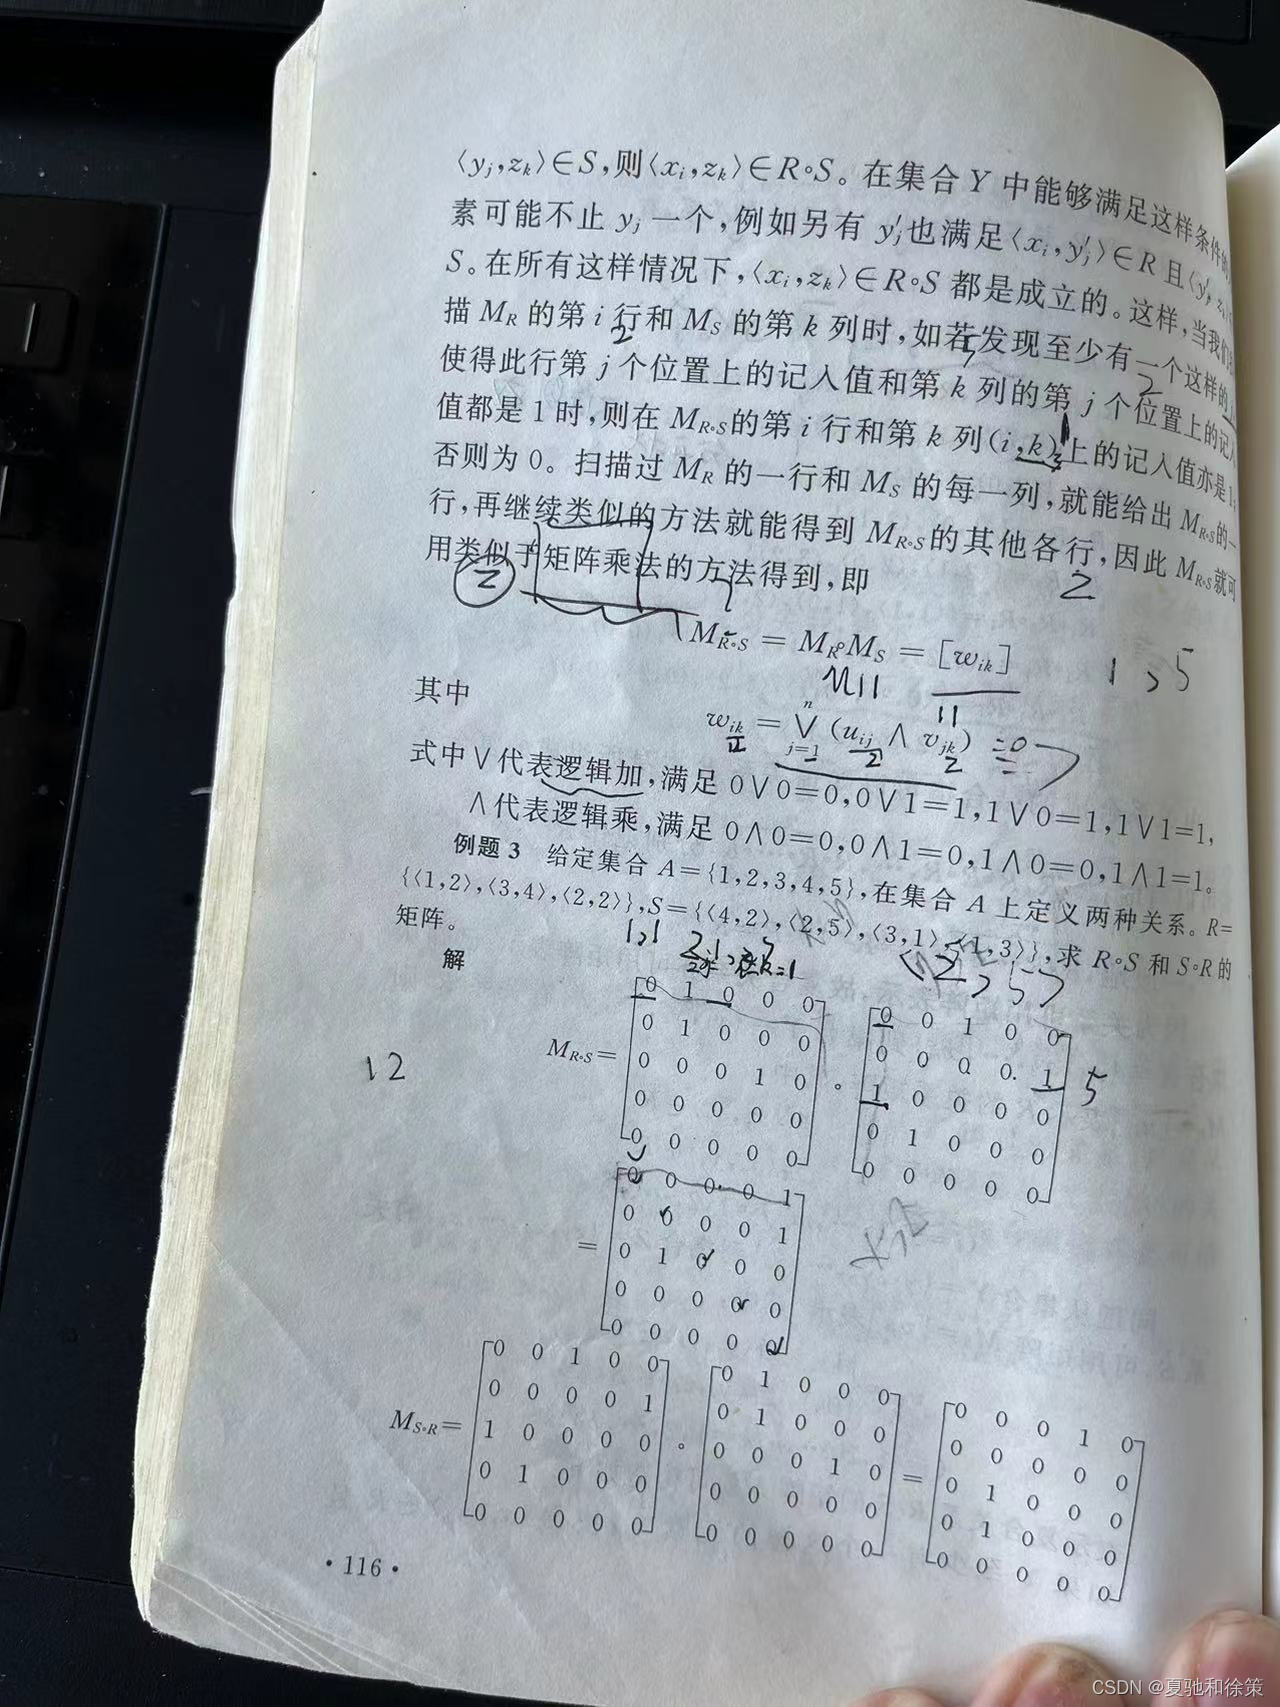 ⟨yj,zk⟩∈S,则⟨xi,zk⟩∈R∘S。在集合Y中能够满足这样条件的
素可能不止yj一个,例如另有y′j也满足⟨xi,y′j⟩∈R且⟨y′j,z
S。在所有这样情况下,⟨xi,zk⟩∈R∘S都是成立的。这样,当我们
描MR的第i行和MS的第k列时,如若发现至少有一个这样的
使得此行第j个位置上的记入值和第k列的第j个位置上的记入
值都是1时,则在MR∘S的第i行和第k列(i,k)上的记入值亦是1;
否则为0。扫描过MR的一行和MS的每一列,就能给出MR∘S的一
行,再继续类似的方法就能得到MR∘S的其他各行,因此MR∘S就可
用类似于矩阵乘法的方法得到,即
2
2
MR∘S = MR∘MS = [wik]
1,5
其中
11
wik = ⋁_{j=1}^{n} (uij ∧ vjk)
=0
式中∨代表逻辑加,满足0∨0=0,0∨1=1,1∨0=1,1∨1=1,
∧代表逻辑乘,满足0∧0=0,0∧1=0,1∧0=0,1∧1=1。
例题3 给定集合A={1,2,3,4,5},在集合A上定义两种关系。R=
{⟨1,2⟩,⟨3,4⟩,⟨2,2⟩},S={⟨4,2⟩,⟨2,5⟩,⟨3,1⟩,⟨1,3⟩},求R∘S和S∘R的
矩阵。
1,1
<2,5>
解
MR∘S=
0 1 0 0 0
0 1 0 0 0
0 0 0 1 0
0 0 0 0 0
0 0 0 0 0
∘
0 0 1 0 0
0 0 0 0 1
1 0 0 0 0
0 1 0 0 0
0 0 0 0 0
12
5
=
0 0 0 0 1
0 0 0 0 1
0 1 0 0 0
0 0 0 0 0
0 0 0 0 0
MS∘R=
0 0 1 0 0
0 0 0 0 1
1 0 0 0 0
0 1 0 0 0
0 0 0 0 0
∘
0 1 0 0 0
0 1 0 0 0
0 0 0 1 0
0 0 0 0 0
0 0 0 0 0
=
0 0 0 1 0
0 0 0 0 0
0 1 0 0 0
0 1 0 0 0
0 0 0 0 0
·116·
CSDN @夏驰和徐策